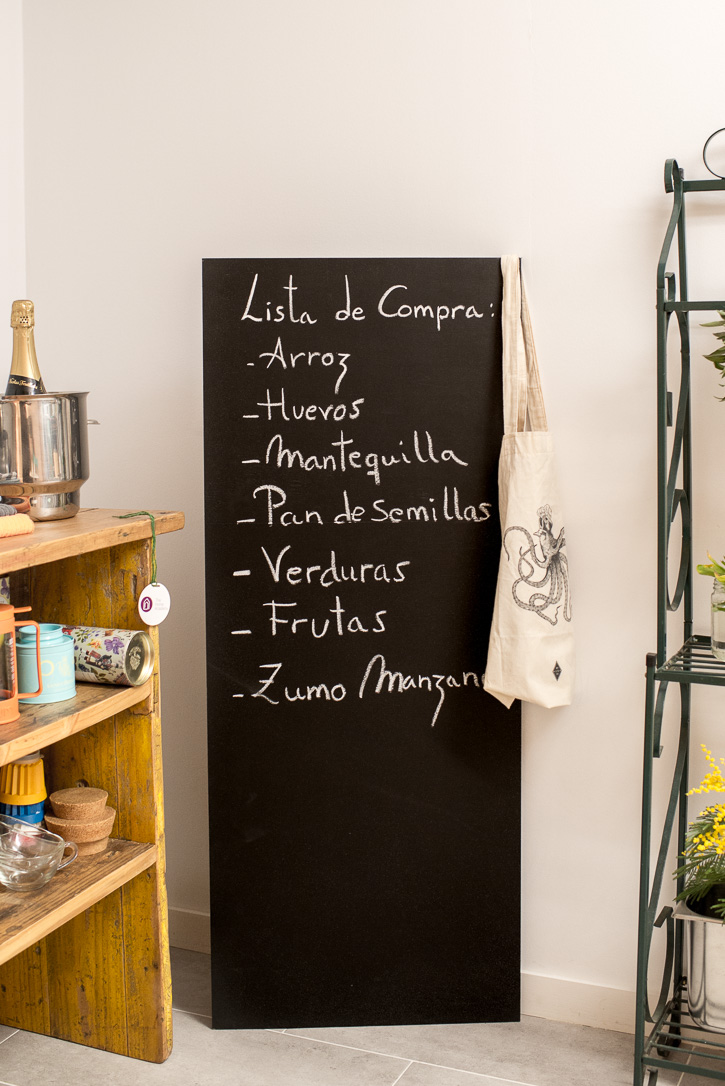 Lista de Compra:
- Arroz
- Huevos
- Mantequilla
- Pan de Semillas
- Verduras
- Frutas
- Zumo